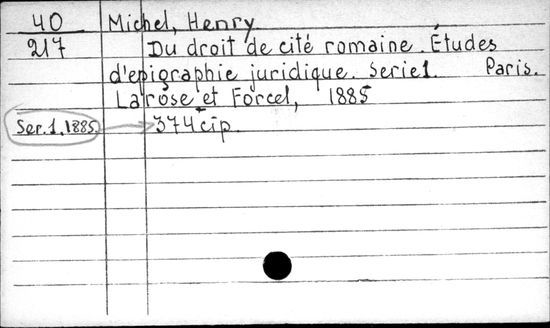 40 Michel, Henry
217 Du droit de cité romaine. Études
d'epigraphie juridique. Serie 1. Paris.
Larose et Forcel, 1885
Ser. 1. 1885. 374 cip.